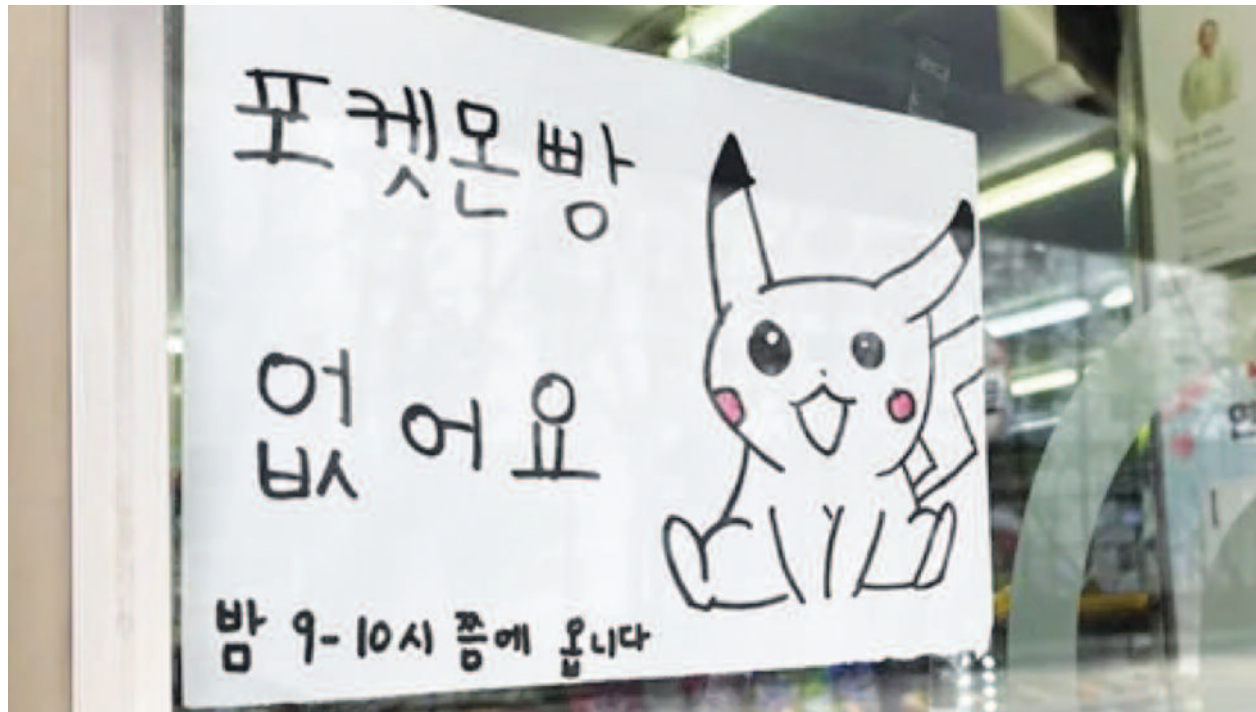 포켓몬빵
없어요
밤 9-10시 쯤에 옵니다